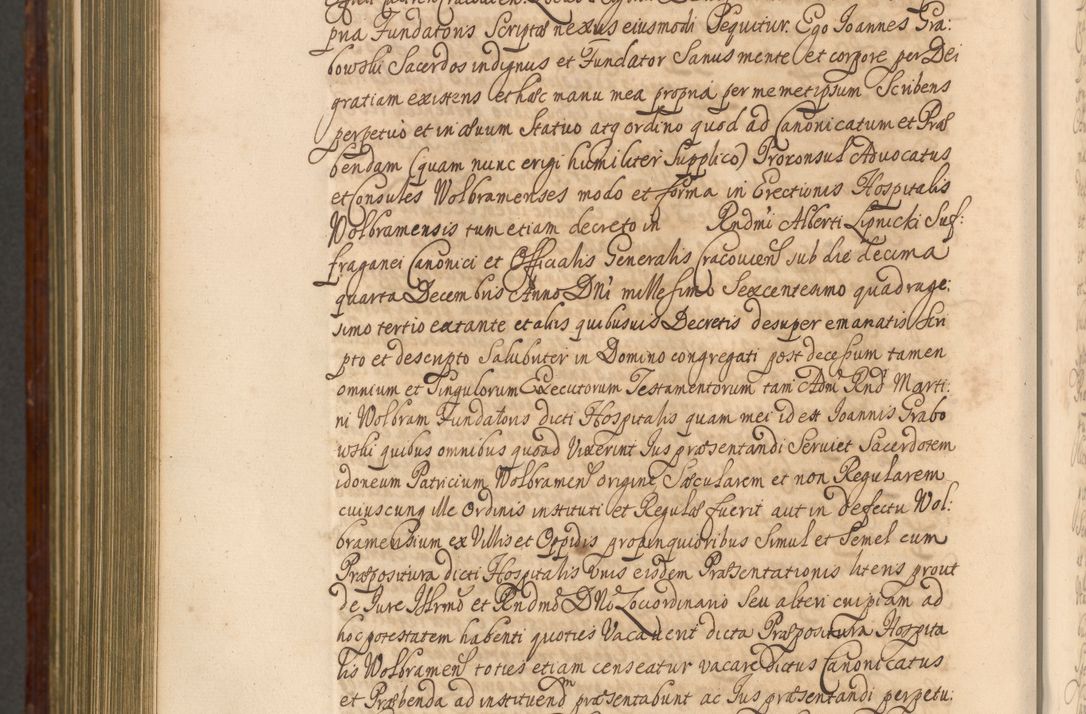 pria Fundatoris Scriptæ nexus eiusmodi Sequitur. Ego Joannes Gra:
bowski Sacerdos indignus et Fundator Sanus mente et corpore per Dei
gratiam existens et hac manu mea propria per memetipsum Scribens
perpetuo et in ævum Statuo atq ordino quod ad Canonicatum et Præ
bendam (quam nunc erigi humiliter Supplico) Proconsul Advocatus
et Consules Wolbramenses modo et forma in Erectionis Hospitalis
Wolbramensis tum etiam decreto in Rndmi Alberti Lipnicki Suf:
fraganei Canonici et Officialis Generalis Cracovien sub die decima
quarta Decembris Anno DNi millesimo Sexcentesimo quadrage:
simo tertio extante et aliis quibusvis Decretis desuper emanatis Scri
pto et descripto Salubriter in Domino congregati post decessum tamen
omnium et Singulorum Executorum Testamentorum tam Adm Rnd Marti:
ni Wolbram Fundatoris dicti Hospitalis quam mei id est Joannis Grabo
wski quibus omnibus quoad Vixerint Jus præsentandi Serviet Sacerdotem
idoneum Patricium Wolbramen origine Sæcularem et non Regularem
cuiuscunq ille Ordinis instituti et Regulæ fuerit aut in defectu Wol:
bramensium ex Villis et Oppidis propinquioribus Simul et Semel cum
Præpositura dicti Hospitalis Unis eisdem Præsentationis literis prout
de Jure Illrmo et Rndmo DNo Locordinario Seu alteri cuipiam ad
hoc potestatem habenti quoties Vacaverit dicta Præpositura Hospita
lis Wolbramen toties etiam censeatur vacare dictus Canonicatus
et Præbenda ad instituend præsentabunt ac Jus præsentandi perpetu: